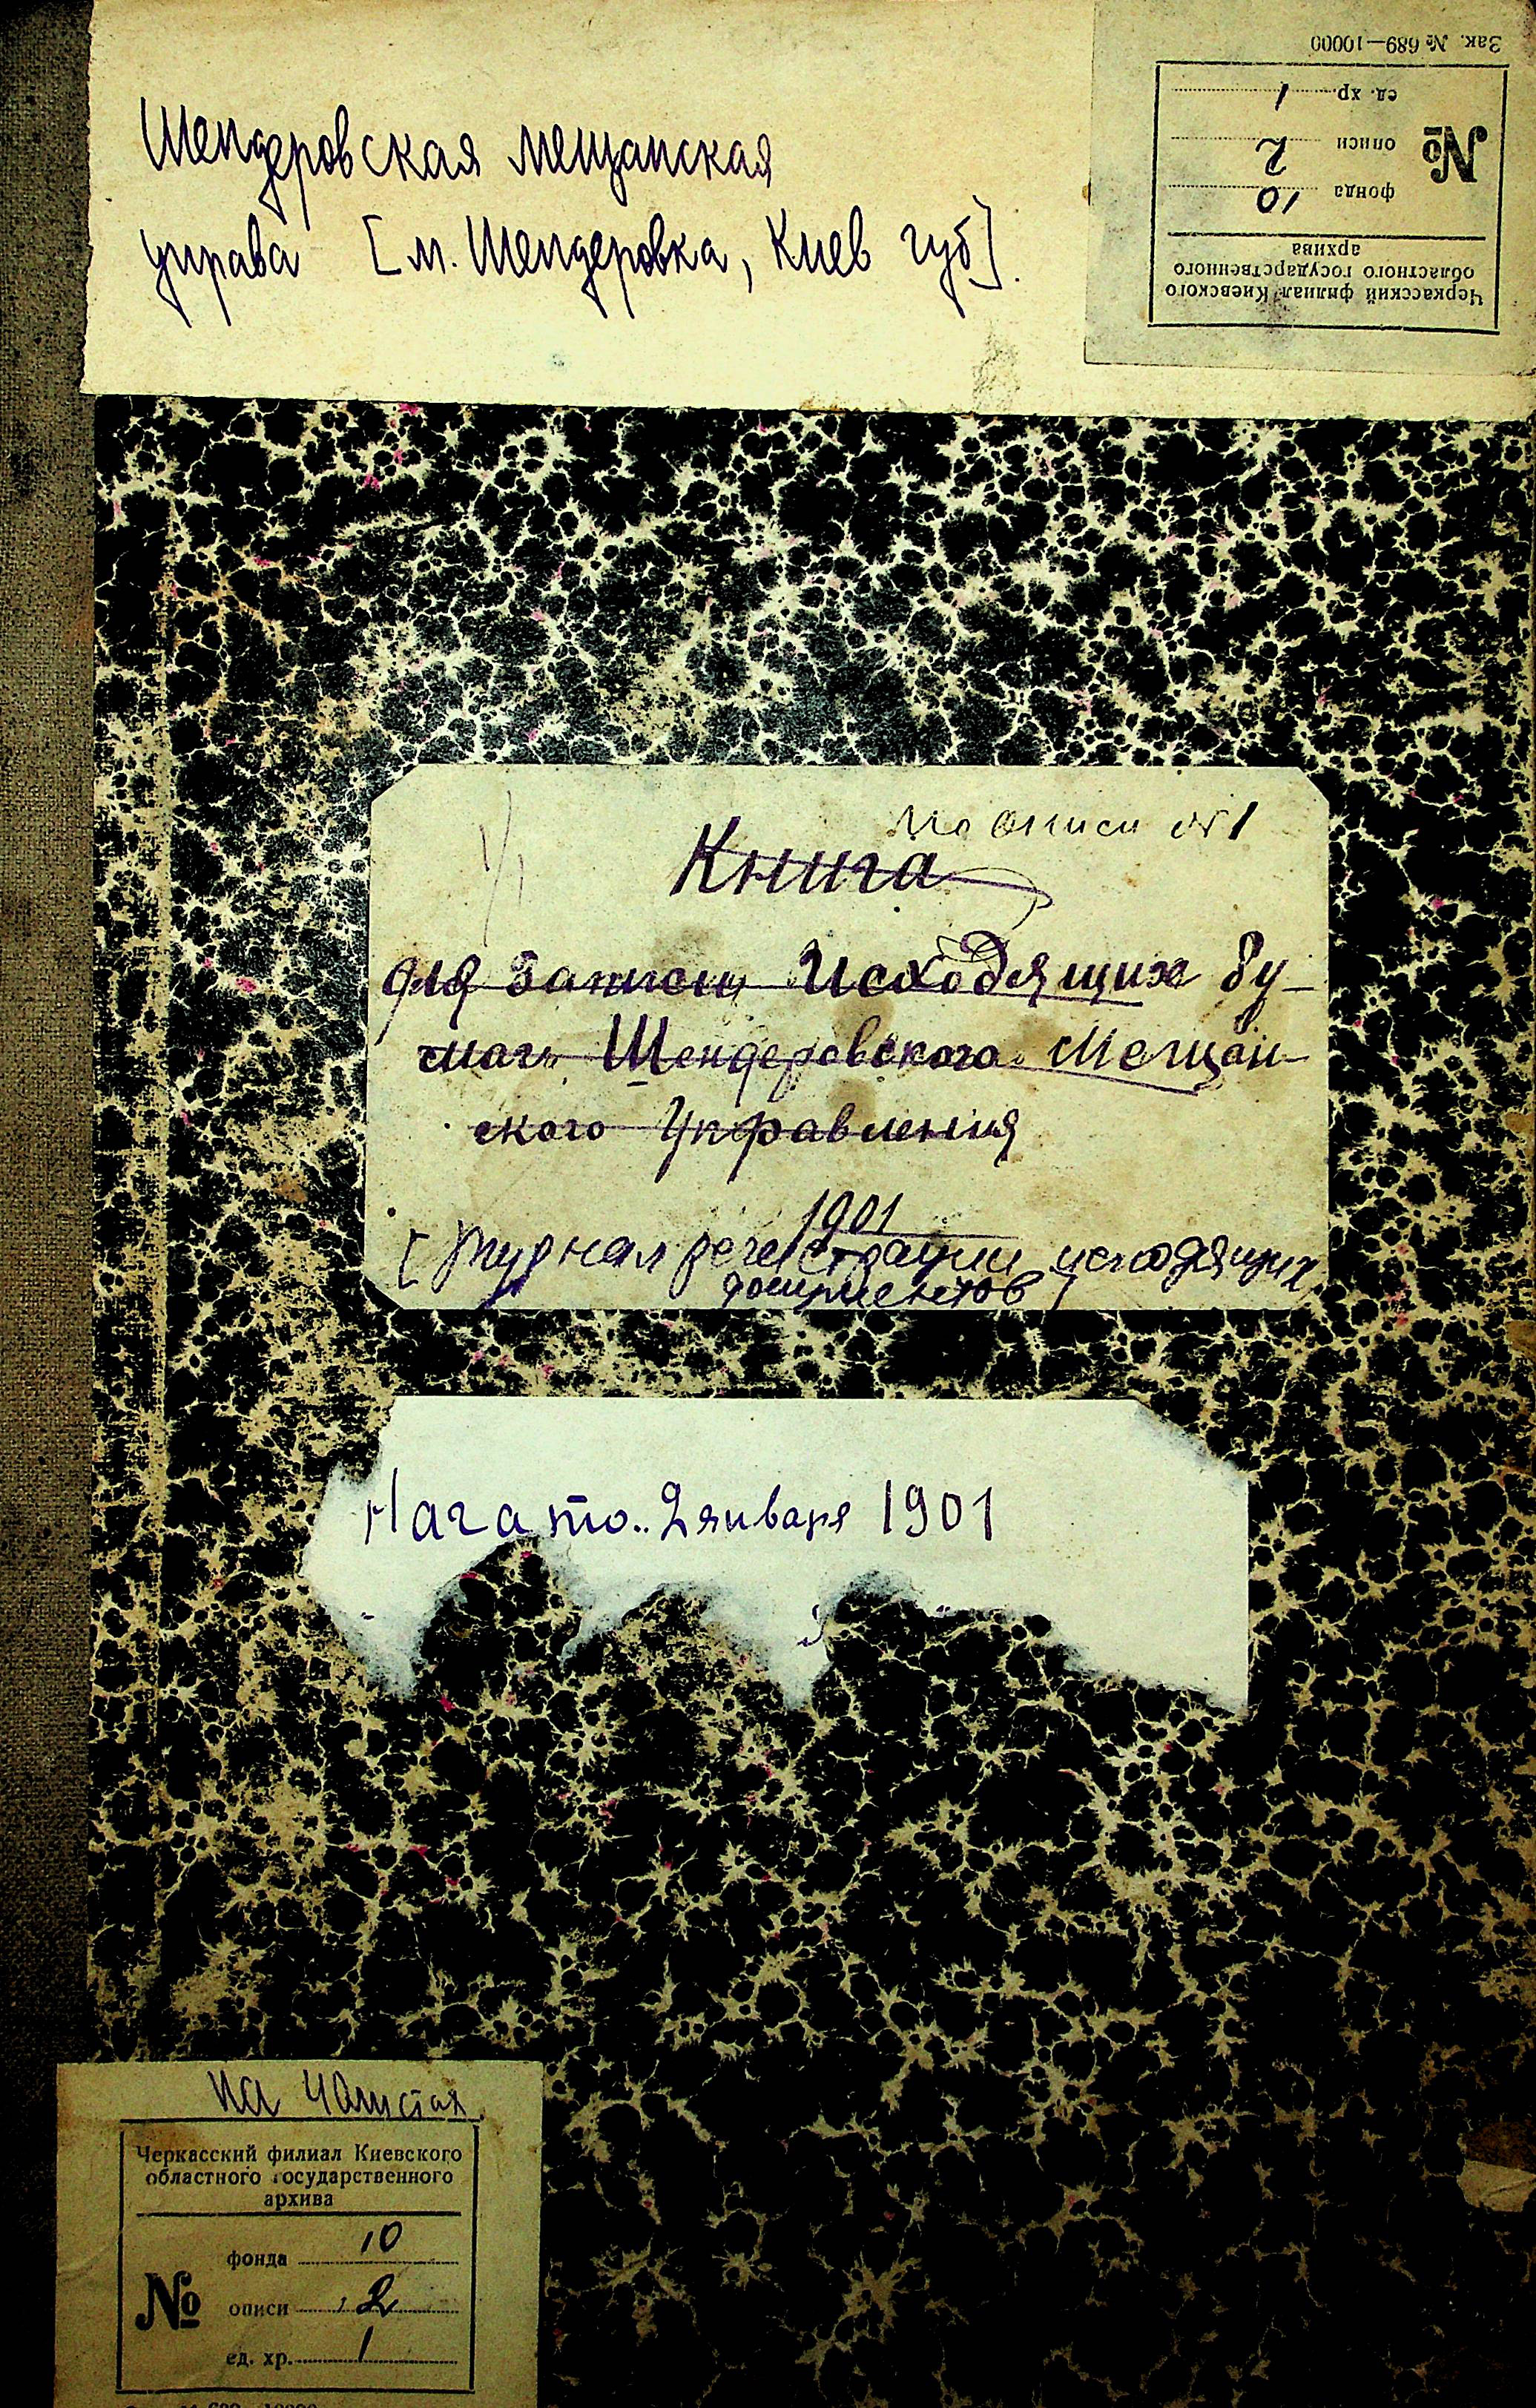 Зак. № 689—10000
ед. хр. 1
№ описи 2
фонда 10
Черкасский филиал Киевского
областного государственного
архива
Шендеровская мещанская
управа [м. Шендеровка, Киев губ].
1/1
По описи № 1
Книга
для записи Исходящих бу-
магъ Шендеровского Мещан-
ского Управленія
1901
[Журнал регистрации исходящих
документов]
Начато.. 2 января 1901
на 40 листах.
Черкасский филиал Киевского
областного государственного
архива
фонда 10
№ описи 2
ед. хр. 1